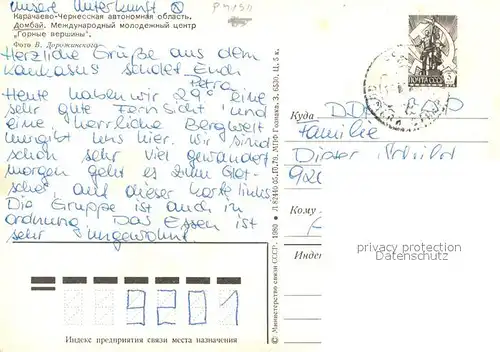 unsere Unterkunft ⊗
Карачаево-Черкесская автономная область.
Домбай. Международный молодежный центр
„Горные вершины".
Фото В. Дорожинского
Herzliche Grüße aus dem
Kaukasus sendet Euch
Petra
Heute haben wir 29° eine
sehr gute Fernsicht und
eine herrliche Bergwelt
umgibt uns hier. Wir sind
schon sehr viel gewandert
morgen geht es zum Glet-
scher, auf dieser Karte links.
Die Gruppe ist auch in
Ordnung. Das Essen ist
sehr ungewohnt.
© Министерство связи СССР. 1980 • Л 82440 05.10.79. МПФ Гознака. З. 6530. Ц. 5 к.
ПОЧТА СССР
Куда DDR
Familie
Dieter
920
Кому
Индекс
privacy protection
Datenschutz
9201
Индекс предприятия связи места назначения